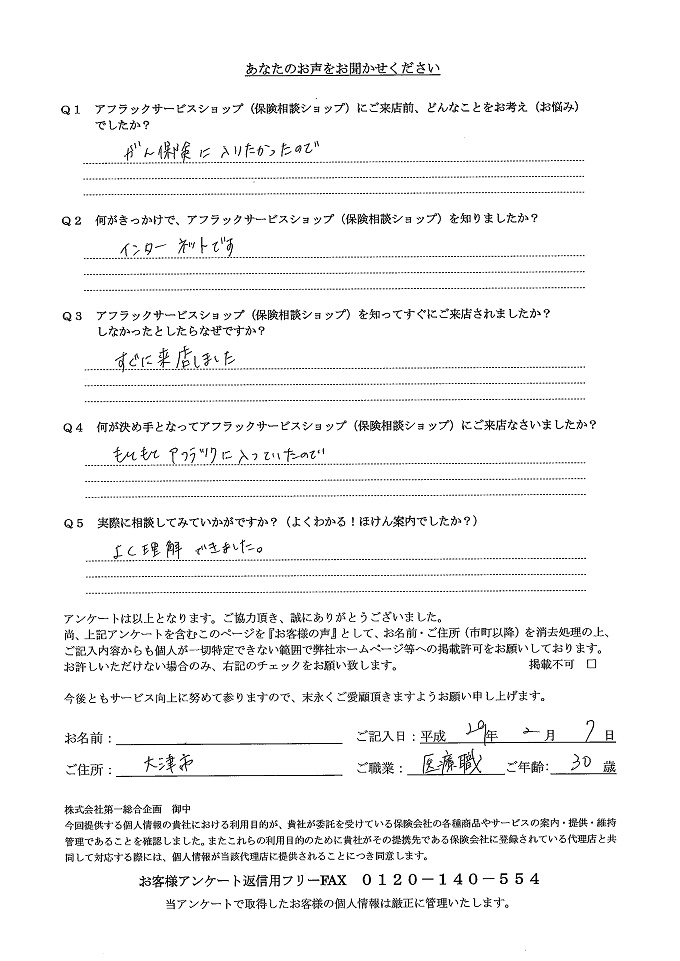 あなたのお声をお聞かせください
Q1 アフラックサービスショップ（保険相談ショップ）にご来店前、どんなことをお考え（お悩み）
でしたか？
がん保険に入りたかったので
Q2 何がきっかけで、アフラックサービスショップ（保険相談ショップ）を知りましたか？
インターネットです
Q3 アフラックサービスショップ（保険相談ショップ）を知ってすぐにご来店されましたか？
しなかったとしたらなぜですか？
すぐに来店しました
Q4 何が決め手となってアフラックサービスショップ（保険相談ショップ）にご来店なさいましたか？
もともと アフラックに入っていたので
Q5 実際に相談してみていかがですか？（よくわかる！ほけん案内でしたか？）
よく理解できました。
アンケートは以上となります。ご協力頂き、誠にありがとうございました。
尚、上記アンケートを含むこのページを『お客様の声』として、お名前・ご住所（市町以降）を消去処理の上、
ご記入内容からも個人が一切特定できない範囲で弊社ホームページ等への掲載許可をお願いしております。
お許しいただけない場合のみ、右記のチェックをお願い致します。 掲載不可 □
今後ともサービス向上に努めて参りますので、末永くご愛顧頂きますようお願い申し上げます。
お名前： ご記入日：平成 29年 2月 7日
ご住所： 大津市 ご職業： 医療職 ご年齢： 30 歳
株式会社第一総合企画 御中
今回提供する個人情報の貴社における利用目的が、貴社が委託を受けている保険会社の各種商品やサービスの案内・提供・維持
管理であることを確認しました。またこれらの利用目的のために貴社がその提携先である保険会社に登録されている代理店と共
同して対応する際には、個人情報が当該代理店に提供されることにつき同意します。
お客様アンケート返信用フリーFAX 0120－140－554
当アンケートで取得したお客様の個人情報は厳正に管理いたします。